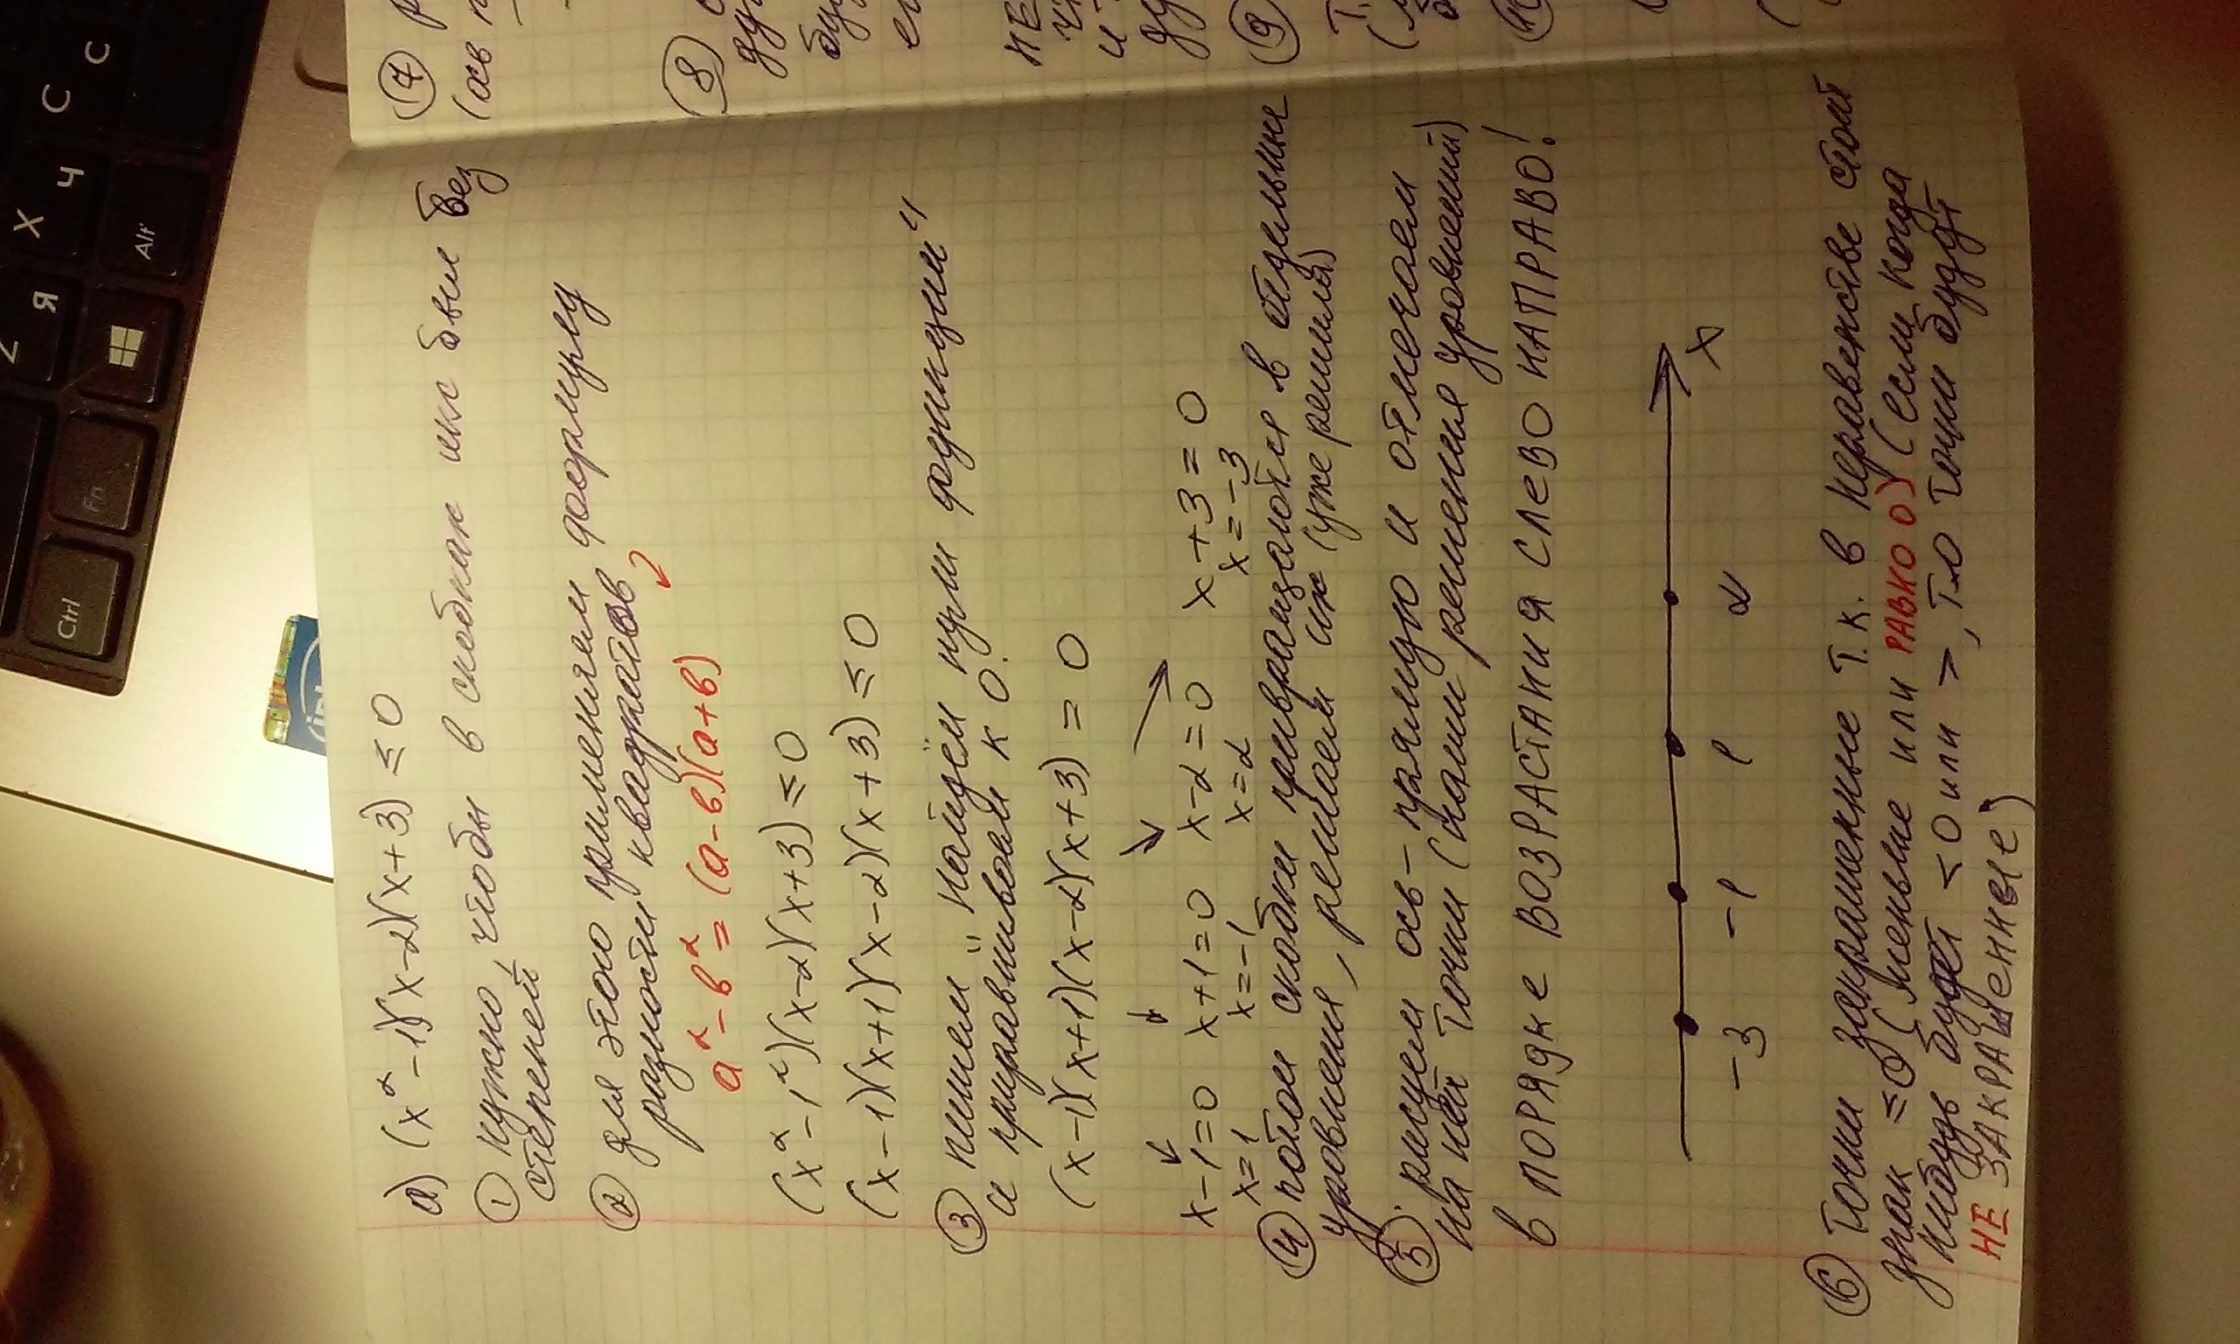 а) (x² - 1)(x-2)(x+3) ≤ 0
① нужно, чтобы в скобках икс был без
степеней
② для этого применяем формулу
разности квадратов
a² - в² = (a-в)(a+в)
(x² - 1²)(x-2)(x+3) ≤ 0
(x-1)(x+1)(x-2)(x+3) ≤ 0
③ пишем "Найдём нули функции"
и приравниваем к 0.
(x-1)(x+1)(x-2)(x+3) = 0
x-1=0 x+1=0 x-2=0 x+3=0
x=1 x=-1 x=2 x=-3
④ потом скобки превращаются в отдельные
уравнения, решаем их (уже решила)
⑤ рисуем ось-прямую и отмечаем
на ней точки (наши решения уравнений)
в ПОРЯДКЕ ВОЗРАСТАНИЯ СЛЕВО НАПРАВО!
-3 -1 1 2 x
⑥ Точки закрашенные т.к. в неравенстве стой
знак ≤0 (меньше или РАВНО 0) (если когда
нибудь будет <0 или >, то точки будут
НЕ ЗАКРАШЕННЫЕ)
⑦
(ось
⑧
НЕ
⑨
Ctrl
Fn
Alt
Z Я
X Ч
C С